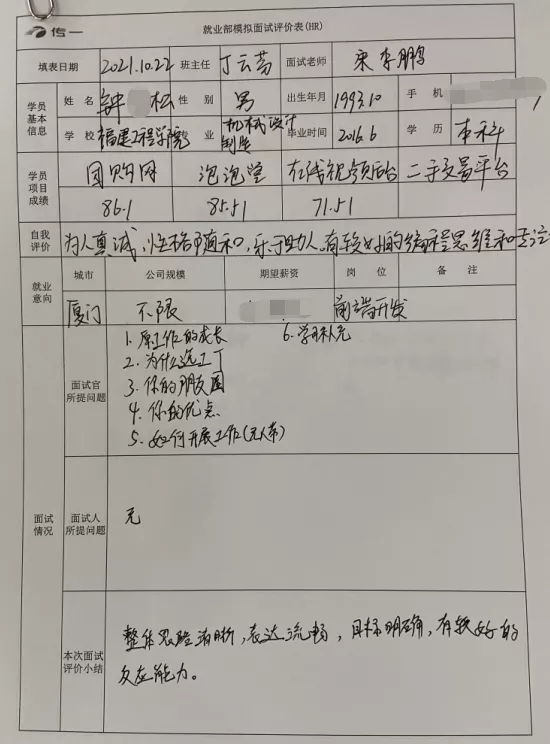 传一
就业部模拟面试评价表(HR)
填表日期 2021.10.22 班主任 丁云芬 面试老师 宋李鹏
学员基本信息
姓名 钟 松 性别 男 出生年月 1993.10 手机
学校 福建工程学院 专业 机械设计制造 毕业时间 2016.6 学历 本科
学员项目成绩
团购网 泡泡堂 在线视频后台 二手交易平台
86.1 85.51 71.51
自我评价 为人真诚,性格随和,乐于助人,有较好的编程思维和
就业意向
城市 公司规模 期望薪资 岗位 备注
厦门 不限 前端开发
面试情况
面试官所提问题
1. 原工作的成长 6. 学习补充
2. 为什么选
3. 你的朋友圈
4. 你的优点
5. 如何开展工作(无人带)
面试人所提问题
无
本次面试评价小结
整体思路清晰,表达流畅,目标明确,有较好的
反应能力。